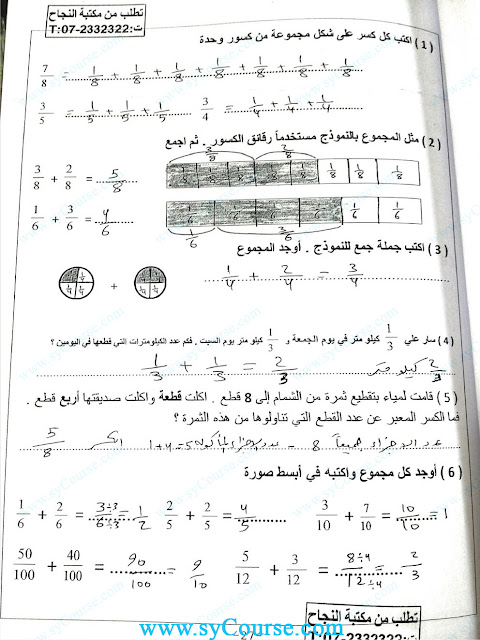 تطلب من مكتبة النجاح
ت:T:07-2332322
(1) اكتب كل كسر على شكل مجموعة من كسور وحدة
7/8 = 1/8 + 1/8 + 1/8 + 1/8 + 1/8 + 1/8 + 1/8
3/5 = 1/5 + 1/5 + 1/5 3/4 = 1/4 + 1/4 + 1/4
(2) مثل المجموع بالنموذج مستخدماً رقائق الكسور . ثم اجمع
3/8 2/8
3/8 + 2/8 = 5/8 1/8 1/8 1/8 1/8 1/8 1/8
1/6 + 3/6 = 4/6 1/6 1/6
1/6 3/6
(3) اكتب جملة جمع للنموذج . أوجد المجموع
+ 1/4 + 2/4 = 3/4
(4) سار علي 1/3 كيلو متر في يوم الجمعة و 1/3 كيلو متر يوم السبت . فكم عدد الكيلومترات التي قطعها في اليومين ؟
1/3 + 1/3 = 2/3 2/3 كيلو متر
(5) قامت لمياء بتقطيع ثمرة من الشمام إلى 8 قطع . اكلت قطعة واكلت صديقتها أربع قطع .
فما الكسر المعبر عن عدد القطع التي تناولوها من هذه الثمرة ؟
عدد الاجزاء جميعاً 8 - عدد الاجزاء المأكولة 5=4+1 الكسر 5/8
(6) أوجد كل مجموع واكتبه في أبسط صورة
1/6 + 2/6 = 3÷3/6÷3 = 1/2 2/5 + 2/5 = 4/5 3/10 + 7/10 = 10/10 = 1
50/100 + 40/100 = 90/100 = 9/10 5/12 + 3/12 = 8÷4/12÷4 = 2/3
تطلب من مكتبة النجاح
ت:T:07-2332322
www.syCourse.com